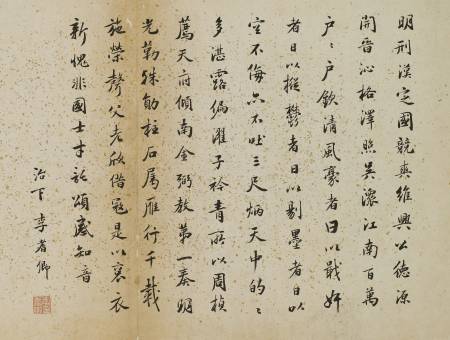 明刑漢定國競爽維公德源
開晉沁格澤照吳江南百萬
戶〻戶欽清風豪者日以戢奸
者日以摧鬱者日以剔墨者日以
空不侮亦不吐三尺炳天中的〻
多湛露徧濯子衿青所以周楨
薦天府傾南金弼教第一奏明
光勒殊勛柱石屬雁行千載
施榮聲父老欣借寇是以袞衣
新愧非國士才詠頌感知音
治下李卿